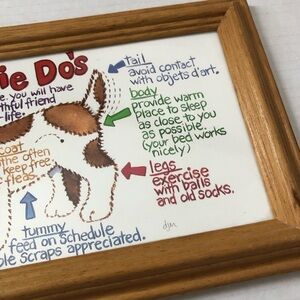 ie Do's
e. you will have
thful friend
life.
tail
avoid contact
with objets d'art.
body
provide warm
place to sleep
as close to you
as possible.
(your bed works
nicely)
coat
the often
keep free
fleas.
legs
exercise
with balls
and old socks.
tummy
feed on schedule
ble scraps appreciated.